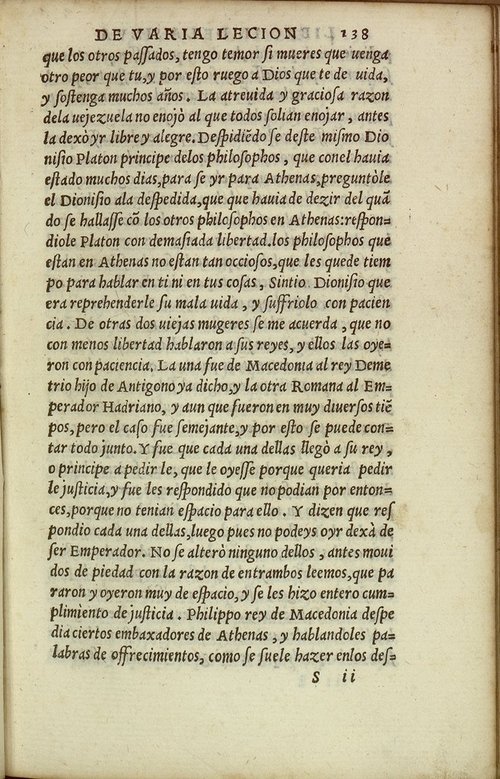 DE VARIA LECION 138
que los otros paſſados, tengo temor ſi mueres que uenga
otro peor que tu, y por eſto ruego a Dios que te de uida,
y ſoſtenga muchos años. La atreuida y gracioſa razon
dela uejezuela no enojò al que todos ſolian enojar, antes
la dexò yr libre y alegre. Deſpidiẽdo ſe deſte miſmo Dio
niſio Platon principe delos philoſophos, que conel hauia
eſtado muchos dias, para ſe yr para Athenas, preguntòle
el Dioniſio ala deſpedida, que que hauia de dezir del quã
do ſe hallaſſe cõ los otros philoſophos en Athenas: reſpon=
diole Platon con demaſiada libertad. los philoſophos que
eſtan en Athenas no eſtan tan occioſos, que les quede tiem
po para hablar en ti ni en tus coſas, Sintio Dioniſio que
era reprehenderle ſu mala uida, y ſuffriolo con pacien
cia. De otras dos uiejas mugeres ſe me acuerda, que no
con menos libertad hablaron a ſus reyes, y ellos las oye=
ron con paciencia. La una fue de Macedonia al rey Deme
trio hijo de Antigono ya dicho, y la otra Romana al Em=
perador Hadriano, y aun que fueron en muy diuerſos tiẽ
pos, pero el caſo fue ſemejante, y por eſto ſe puede con=
tar todo junto. Y fue que cada una dellas llegò a ſu rey,
o principe a pedir le, que le oyeſſe porque queria pedir
le juſticia, y fue les reſpondido que no podian por enton=
ces, porque no tenian eſpacio para ello. Y dizen que reſ
pondio cada una dellas, luego pues no podeys oyr dexà de
ſer Emperador. No ſe alterò ninguno dellos, antes moui
dos de piedad con la razon de entrambos leemos, que pa
raron y oyeron muy de eſpacio, y ſe les hizo entero cum=
plimiento de juſticia. Philippo rey de Macedonia deſpe
dia ciertos embaxadores de Athenas, y hablandoles pa=
labras de offrecimientos, como ſe ſuele hazer enlos deſ=
S ii